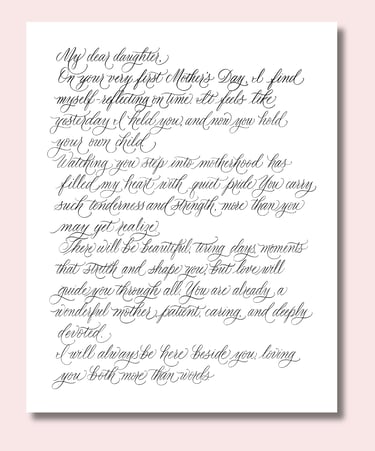 My dear daughter,
On your very first Mother's Day, I find
myself reflecting on time. It feels like
yesterday I held you, and now you hold
your own child.
Watching you step into motherhood has
filled my heart with quiet pride. You carry
such tenderness and strength, more than you
may yet realize.
There will be beautiful, tiring days, moments
that stretch and shape you, but love will
guide you through all. You are already a
wonderful mother, patient, caring, and deeply
devoted.
I will always be here beside you, loving
you both more than words.